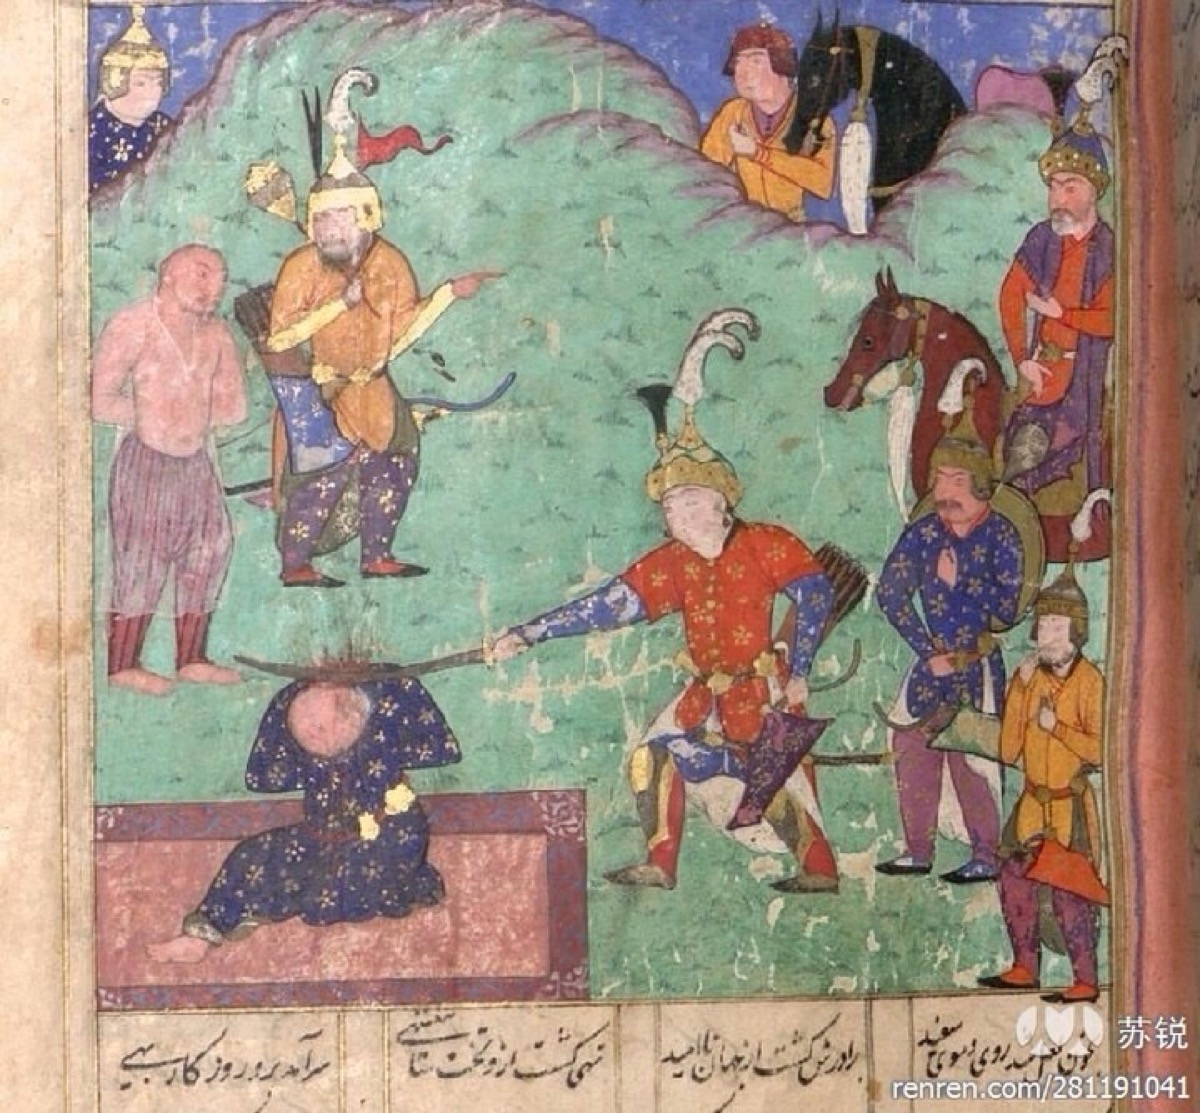 بخون لعل شد روی و موی سفید برادرش گشت از جهان ناامید تهی گشت ازو تخت شاهنشهی سرآمد برو روزگار بهی
苏锐
renren.com/281191041